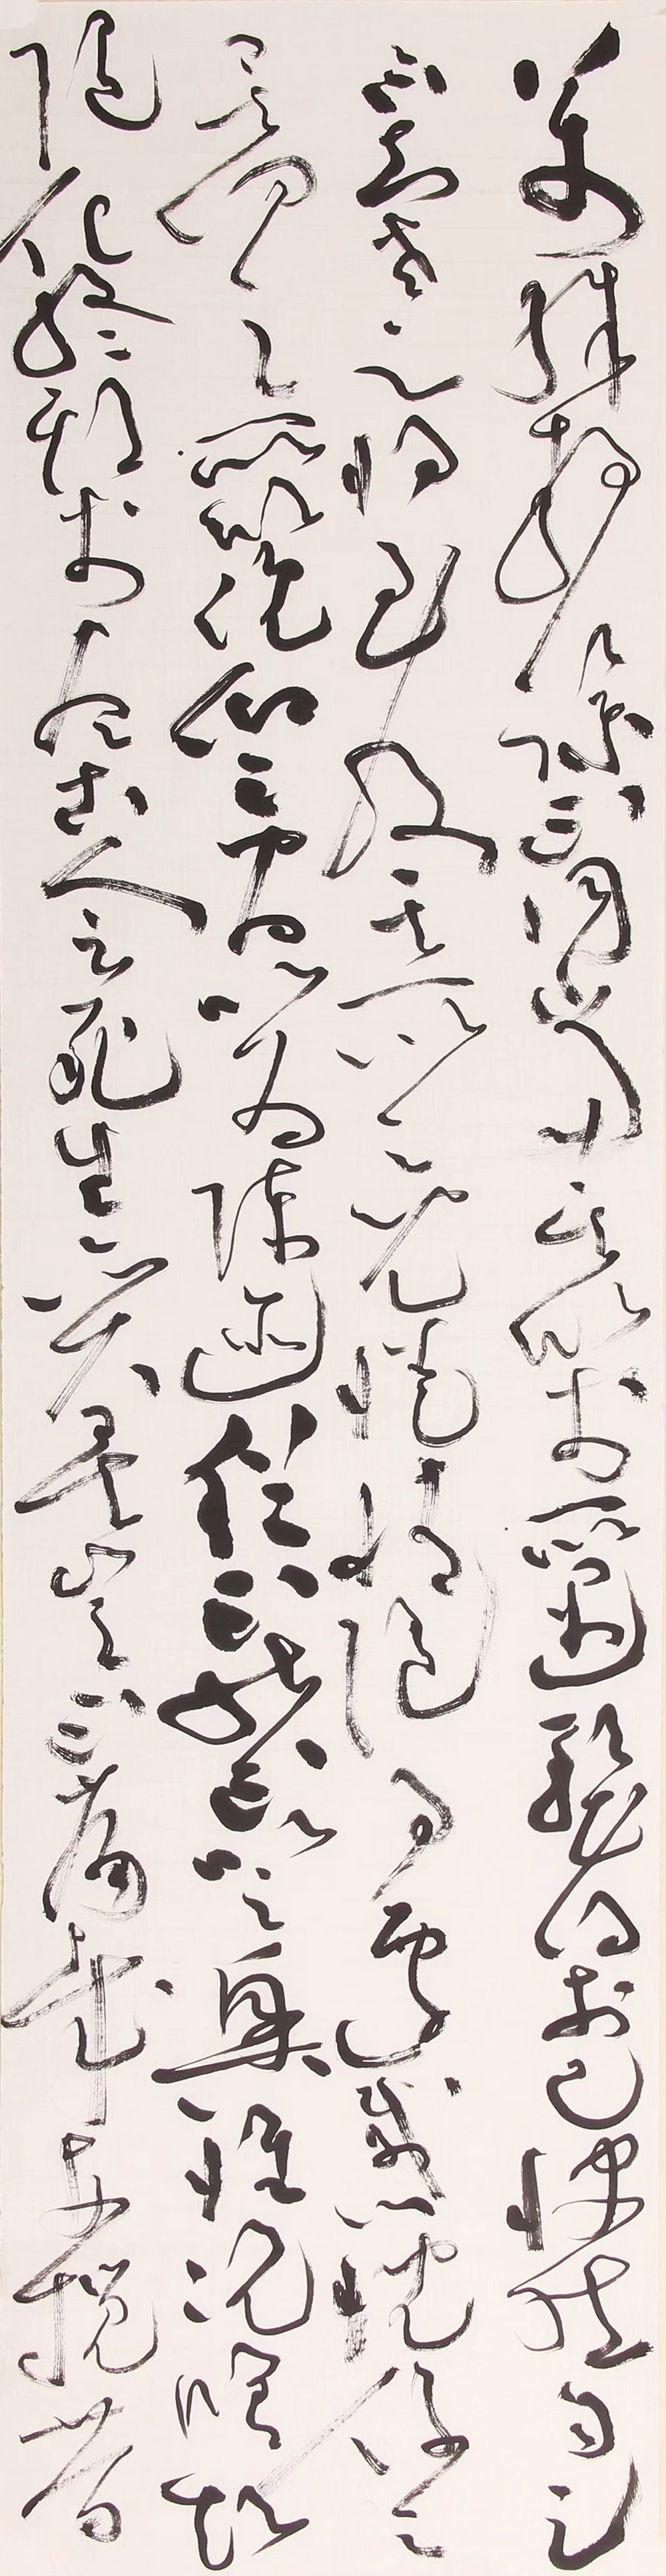 萬殊靜躁不同當其欣於所遇暫得於己快然自足
不知老之將至及其所之既惓情隨事遷感慨係之
矣向之所欣俛仰之間以為陳迹猶不能不以之興懷況脩短
隨化終期於盡古人云死生亦大矣豈不痛哉每攬昔